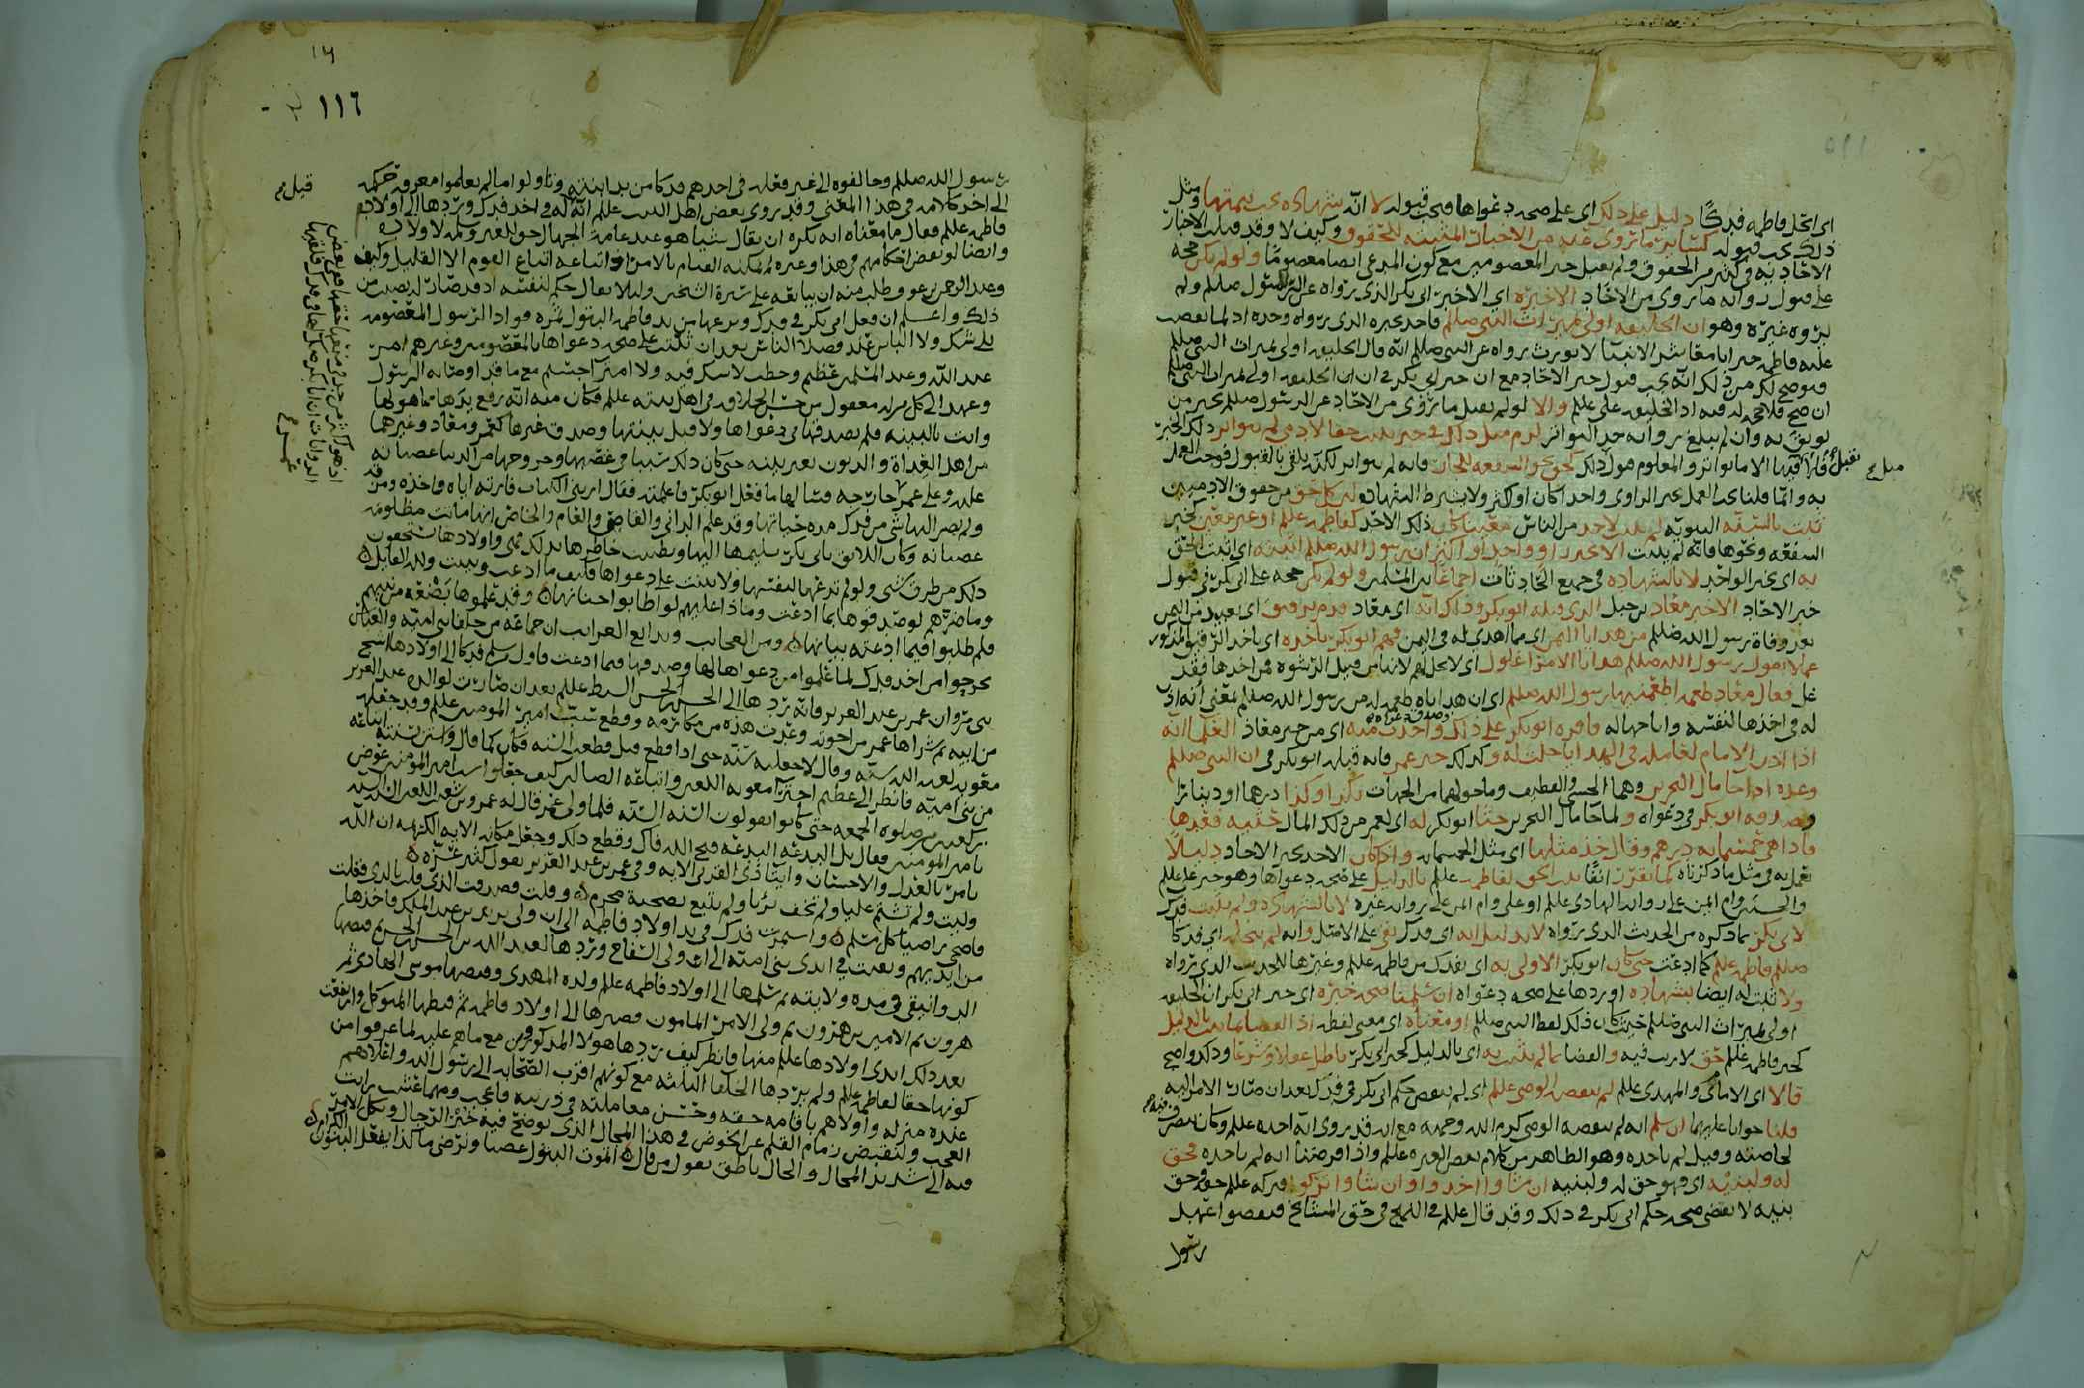 اى انحل فاطمه فدكًا دليل على ذلك اى على صحه دعواها فيجب قبوله لا انّه شهاده يجب تتمتها ومثل
ذلك يجب قبوله كسائر ما تروى عنه من الاخبار المثبته للحقوق وكيف لا وقد قبلت الاخبار
الاحاديه فى كثير من الحقوق ولم يقبل خبر المعصومين مع كون المدعى ايضا معصومًا ولو لم يكن حجه
على قبول روايه ما يروى من الآحاد الاخيره اى الاخبر ابى بكر الذى رواه عن الرسول صللم ولم
يروه غيره وهو ان الخليفه اولى بميراث النبى صللم فاحد خبره الذى رواه وحده
عليه فاطمه خبر انا معاشر الانبيا لا نورث رواه عن النبى صللم انه قال الخليفه اولى بميراث النبى صللم
فيوضح لك من ذلك انه يجب قبول خبر الآحاد مع ان خبر ابى بكر فى ان الخليفه اولى بميراث النبى صللم
ان صح فلا حجه له فيه اذ الخليفه على علم والا لو لم يقبل ما يروى من الآحاد عن الرسول صللم بخبر من
يوثق به وان لم يبلغ برواته حد التواتر لزم مثل ذلك فى خبر يثبت حقا لآدمى لم يتواتر ذلك الخبر
فلا يقبل فيها الا ما تواتر والمعلوم هو ان ذلك كخبر نحو الشفعه للجار فانه لم يتواتر لكنه تلقى بالقبول فوجب العمل
به وانما قلنا يجب العمل بخبر الراوى واحدا كان او اكثر ولا يشترط الشهاده لان كل حق من حقوق الادميين
ثبت بالسنه النبويه لم يثبت لاحد من الناس معينا كان ذلك الاحد كفاطمه عللم او غير معين كخبر
الشفعه ونحوها فانه لم يثبت الا بخبر راوٍ واحد او اكثر ان رسول الله صللم اثبته اى اثبت الحق
به اى بخبر الواحد لا بالشهاده فى جميع الحادثات اجماعًا بين المسلمين ولو لم يكن حجه على ابى بكر فى قبول
خبر الاحاد الا خبر معاذ بن جبل الذى قبله ابو بكر وذلك انه اى معاذ قدم برقيق اى بعبيد من اليمن
بعد وفاة رسول الله صللم من هدايا اليمن اى مما اهدى له فى اليمن فهم ابو بكر باخذه اى باخذ الرقيق المذكور
عملا بقول رسول الله صللم هدايا الامراء غلول اى لا يحل لهم لانها من قبيل الرشوه فمن اخذها فقد
غل فقال معاذ طعمه اطعمنيها رسول الله صللم اى ان هداياه طعمه له من رسول الله صللم بمعنى انه اذن
له فى اخذها لنفسه واباحها له فاقره ابو بكر على ذلك واخذ منه اى من خبر معاذ العلما انه
اذا اذن الامام لعامله فى الهدايا حلت له وكذلك خبر عمر فانه قبله ابو بكر فى ان النبى صللم
وعده اذا جا مال البحرين وهما الحسا والقطيف وما حولهما من الجهات بكذا وكذا درهما او دينارًا
وصدقه ابو بكر فى دعواه ولما جا مال البحرين حثا ابو بكر له اى لعمر من ذلك المال حثيه فعدها
فاذا هى خمسمايه درهم وقال خذ مثلها اى مثل الخمسمايه واذا كان الاحد بخبر الاحاد دليلًا
يعمل به فى مثل ما ذكرناه كما تقرر آنفًا ثبت الحق لفاطمه عللم بالدليل على صحه دعواها وهو خبر على عللم
والحسنين وام ايمن على روايه الهادى عللم او على وام ايمن على روايه غيره لا بالشهاده ولم يثبت فدك
لابى بكر بما ذكره من الحديث الذى رواه لانه لم
صللم فاطمه عللم كما ادعت حتى كان ابو بكر الاولى به اى بفدك من فاطمه عللم وغيرها للحديث الذى رواه
ولا ثبت له ايضا بشهاده اوردها على صحه دعواه ان سلمنا صحه خبره اى خبر ابى بكر ان الخليفه
اولى بميراث النبى صللم حيث كان ذلك لفظ النبى صللم او معناه اى معنى لفظه اذ القضا بما يثبت بالدليل
كخبر فاطمه عللم حق لا ريب فيه والقضا بما لم يثبت به اى بالدليل كخبر ابى بكر باطل عقلًا وشرعًا وذلك واضح
قالا اى الامامان والمهدى عللم لم ينقضه الوصى عللم اى لم ينقض حكم ابى بكر فى فدك بعد ان صارت الامر اليه
قلنا جوابا عليهما ان سلم انه لم ينقضه الوصى كرم الله وجهه مع انه قد روى انه اخذه عللم وكان يصرف فيه
لخاصته وقيل لم ياخذه وهو الظاهر من كلام بعض العتره عللم واذا فرضنا انه لم ياخذه فحق
له ولبنيه اى فهو حق له ولبنيه ان شاوا اخذوا وان شاوا تركوا فتركه عللم حقه وحق
بنيه لا يقضى صحه حكم ابى بكر فى ذلك وقد قال عللم فى النهج فى حق المشايخ فنقضوا عهد
رسول
١١٦
رسول الله صللم وخالفوه الى غير فعله فى اخدهم فدكا من يد ابنته وتاولوا ما لم يعلموا معرفه حكمه
الى اخر كلامه فى هذا المعنى وقد روى بعض اهل البيت عللم انه له فى اخذ فدك وردها الى اولاد
فاطمه عللم فقال ما معناه انه يكره ان يقال شيا هو عند عامه الجهال حق للغير وتمثله لاولاده
وايضا لو نقض احكامهم فى هذا وغيره لم يمكنه القيام بالامر اذ اتباعه اتباع القوم الا القليل وكيف
وعبد الرحمن بن عوف طلب منه ان يبايعه على سيرة الشيخين ولئلا يقال حكم لنفسه اذ قد صارت له بصير من
ذلك واعلم ان فعل ابى بكر فى فدك ونزعها من يد فاطمه البتول ثمره فواد الرسول المعصومه
بلا شك ولا التباس عند فضلاء الناس بعد ان ثبتت على صحه دعواها بالمعصومين وغيرهم امر
عند الله وعند المسلمين عظيم وخطب لا شك فيه ولا امترا جسيم مع ما قد اوصا به الرسول
وعهد الى كل فى اهل بيته عللم فكان منه انه رفع يدها مما هو لها
واتت بالبينه فلم يصدقها فى دعواها ولا قبل بينتها وصدق غيرها كعمر ومعاذ وغيرهما
من اهل الفداة والديون بغير بينه حتى كان ذلك سببا فى غضبها وخروجها من الدنيا غضبانه
عليه وعلى عمر
ولم يصر الهاشمى من فدك مده حياتها وقد علم الدانى والقاصى والعام والخاص انها ماتت مظلومه
غضبانه وكان اللايق بابى بكر تسليمها اليها وتطييب خاطرها بذلك هى واولادها يستحقون
ذلك من طرق شتى ولو لم تدعها لنفسها ولا بينت على دعواها فكيف ما ادعت وبينت ولله القايل
وما ضرهم لو صدقوها بما ادعت وماذا عليهم لو اطابوا جنانها وقد علموها بضعه من نبيهم
فلم طلبوا فيما ادعته بيانها ومن العجايب وبدايع الغرايب ان جماعه من خلفا بنى اميه والعباس
تحرجوا من اخذ فدك لما علموا من دعواها لها وصدقها فيما ادعت فاول من سلم فدكا الى اولادها اشج
بنى مروان عمر بن عبد العزيز فانه ردها الى الحسن بن الحسن السبط عللم بعد ان صارت لوالده عبد العزيز
من ابيه ثم شراها عمر من اخوته وعدت هذه من مكارمه وقطع سب امير المومنين عللم وقد جعله
معويه لعنه الله سنه وقال لاجعلنه سنه حتى اذا قطع قيل قطعت السنه فكان كما قال واستن بسنته اتباعه
من بنى اميه فانظر الى عظيم اجترا معويه اللعين واتباعه الضالين كيف جعلوا سب امير المومنين عوض
من صلوه الجمعه حتى كانوا يقولون السنه السنه فلما ولى عمر قال له عمرو بن شعيب اللعين السنه
يا امير المومنين فقال بل البدعه البدعه قبح الله فاك وقطع ذلك وجعل مكانه الايه الكريمه ان الله
يامر بالعدل والاحسان وايتا ذى القربى الايه وفى عمر بن عبد العزيز يقول كثير عزه
وليت ولم تشتم عليا ولم تخف بريا ولم تتبع نصيحة مجرم وقلت فصدقت الذى قلت بالذى فعلت
فاضحى راضيا كل مسلم واستمرت فدك فى يد اولاد فاطمه الى ان ولى يزيد بن عبد الملك فاخذها
من ايديهم وبقيت فى ايدى بنى اميه الى ان ولى السفاح وردها لعبد الله بن الحسن بن الحسن ثم قبضها
الدوانيقى فى مده ولايته ثم سلمها الى اولاد فاطمه عللم ولده المهدى وقبضها موسى الهادى ثم
هرون ثم الامين بن هرون ثم ولى الامر المامون فصيرها الى اولاد فاطمه ثم قبضها المتوكل وارتفعت
بعد ذلك ايدى اولادها عللم منها فانظر كيف ردها هولا المذكورين مع ما هم عليه لما عرفوا من
كونها حقا لفاطمه عللم ولم يردها الخلفا الثلثه مع كونهم اقرب الصحابه الى رسول الله واعلاهم
عنده منزله واولاهم باقامه حقه وحسن معاملته فى ذريته فاعجب ومهما عشت رايت
العجب ولنقبض زمام القلم عن الخوض فى هذا المجال الذى توضح فيه خبر الرجال
فيه الى شديد المحال والحال ناطق يقول من قال اتموت البتول غضبا ونرضى ما كذا يفعل البنون الكرام